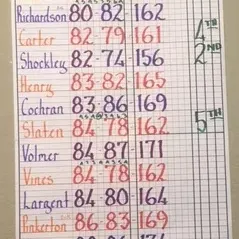 Richardson 80 82-162
Carter 82-79-161 4TH
Shockley 82-74-156 2ND
Henry 83-82-165
Cochran 83-86-169
Slaten 84-78-162 5TH
Volmer 84-87-171
Vines 84-78-162
Largent 84-80-164
Pinkerton 86-83-169